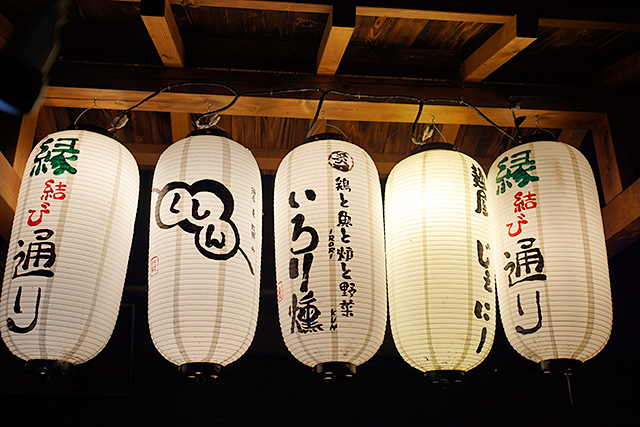 縁
結び
通り
くしん
鶏と魚と炉と野菜
いろり燻
IRORI
KUN
麺屋
じょにー
縁
結び
通り